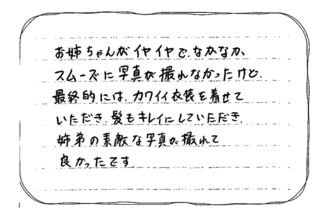 お姉ちゃんがイヤイヤで、なかなか、
スムーズに写真が撮れなかったけど、
最終的には、カワイイ衣装を着せて
いただき、髪もキレイにしていただき、
姉弟の素敵な写真が撮れて
良かったです